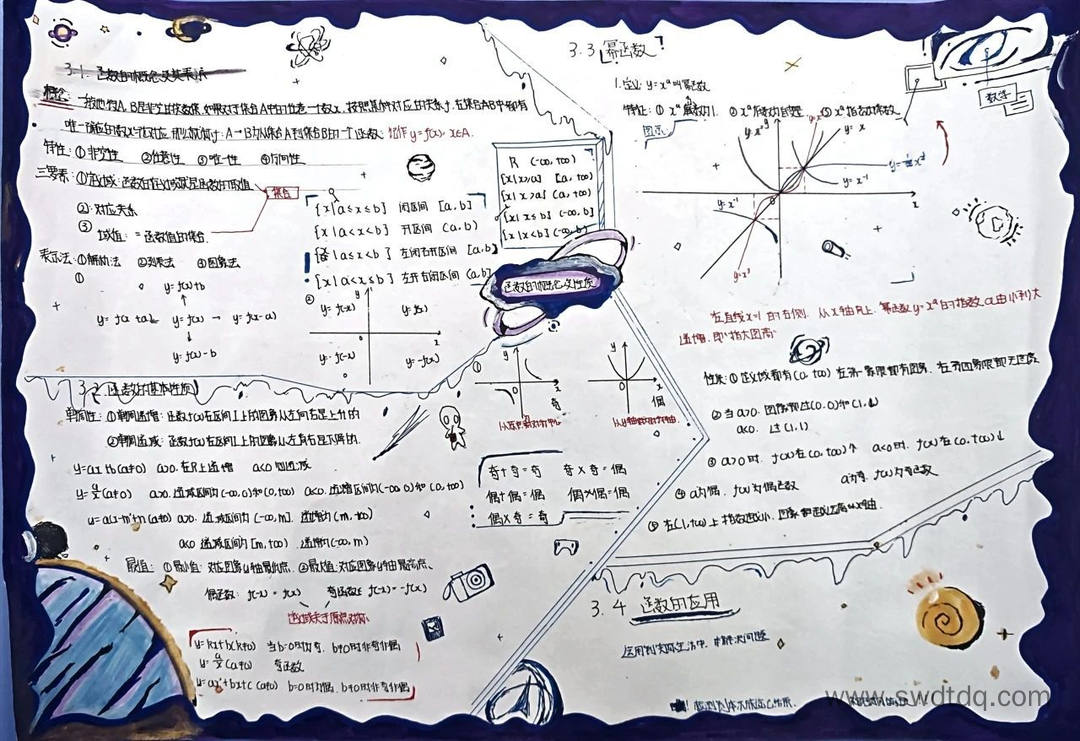 3.1. 函数的概念及其表示
概念: 一般地 A, B是非空的实数集, 如果对于集合A中的任意一个数x, 按照某种对应的关系f, 在集合B中都有
唯一确定的数y与之对应, 那么就称f: A→B为从集合A到集合B的一个函数: 记作 y=f(x), x∈A.
特性: ①非空性 ②任意性 ③唯一性 ④方向性
三要素: ①定义域: 函数的定义域就是函数的取值 集合
②: 对应关系
③ 值域: = 函数值的集合.
表示法: ①解析法 ②列表法 ③图象法
①
y=f(x)+b
y=f(x+a) ← y=f(x) → y=f(x-a)
y=f(x)-b
{x|a≤x≤b} 闭区间 [a, b]
{x|a<x<b} 开区间 (a, b)
{x|a≤x<b} 左闭右开区间 [a, b)
{x|a<x≤b} 左开右闭区间 (a, b]
R (-∞, +∞)
{x|x≥a} [a, +∞)
{x|x>a} (a, +∞)
{x|x≤b} (-∞, b]
{x|x<b} (-∞, b)
②
y
y=f(-x) y=f(x)
x
y=-f(-x) y=-f(x)
函数的概念及性质
3.2 函数的基本性质
单调性: ①单调递增: 函数f(x)在区间I上的图象从左向右是上升的
②单调递减: 函数f(x)在区间I上的图象从左向右是下降的.
y=ax+b(a≠0) a>0. 在R上递增 a<0 则递减
y=a/x(a≠0) a>0. 递减区间为(-∞, 0)和(0, +∞) a<0. 递增区间为(-∞, 0)和(0, +∞)
y=a(x-m)²+n(a≠0) a>0. 递减区间为(-∞, m]. 递增为(m, +∞)
a<0 递减区间为[m, +∞) 递增为(-∞, m)
最值: ①最小值: 对应图象y轴最低点. ②最大值: 对应图象y轴最高点.
偶函数: f(-x)=f(x) 奇函数: f(-x)=-f(x)
定义域关于原点对称.
y=kx+b(k≠0) 当b=0时为奇. b≠0时非奇非偶
y=a/x(a≠0) 奇函数
y=ax²+bx+c(a≠0) b=0时为偶. b≠0时非奇非偶
① y 0 x 奇
y 0 x 偶
奇+奇=奇 奇×奇=偶
偶+偶=偶 偶×偶=偶
偶×奇=奇
3.3 幂函数
1. 定义: y=xᵃ叫幂函数
特征: ①xᵃ系数为1.
图示:
y=x³
y=x
y=x⁻¹
y=x⁻¹
y=x³
0
x
数学
在直线x=1的右侧. 从x轴向上. 幂函数y=xᵃ的指数a由小到大
递增. 即"指大图高"
性质: ①定义域都有(0, +∞) 在第一象限都有图象.
②当a>0. 图象都过(0,0)和(1,1)
a<0. 过(1,1)
③a>0时. f(x)在(0, +∞)↑ a<0时. f(x)在(0, +∞)↓
④a为偶. f(x)为偶函数 a为奇. f(x)为奇函数
3.4 函数的应用
运用到实际生活中. 解决问题
www.swdtdq.com